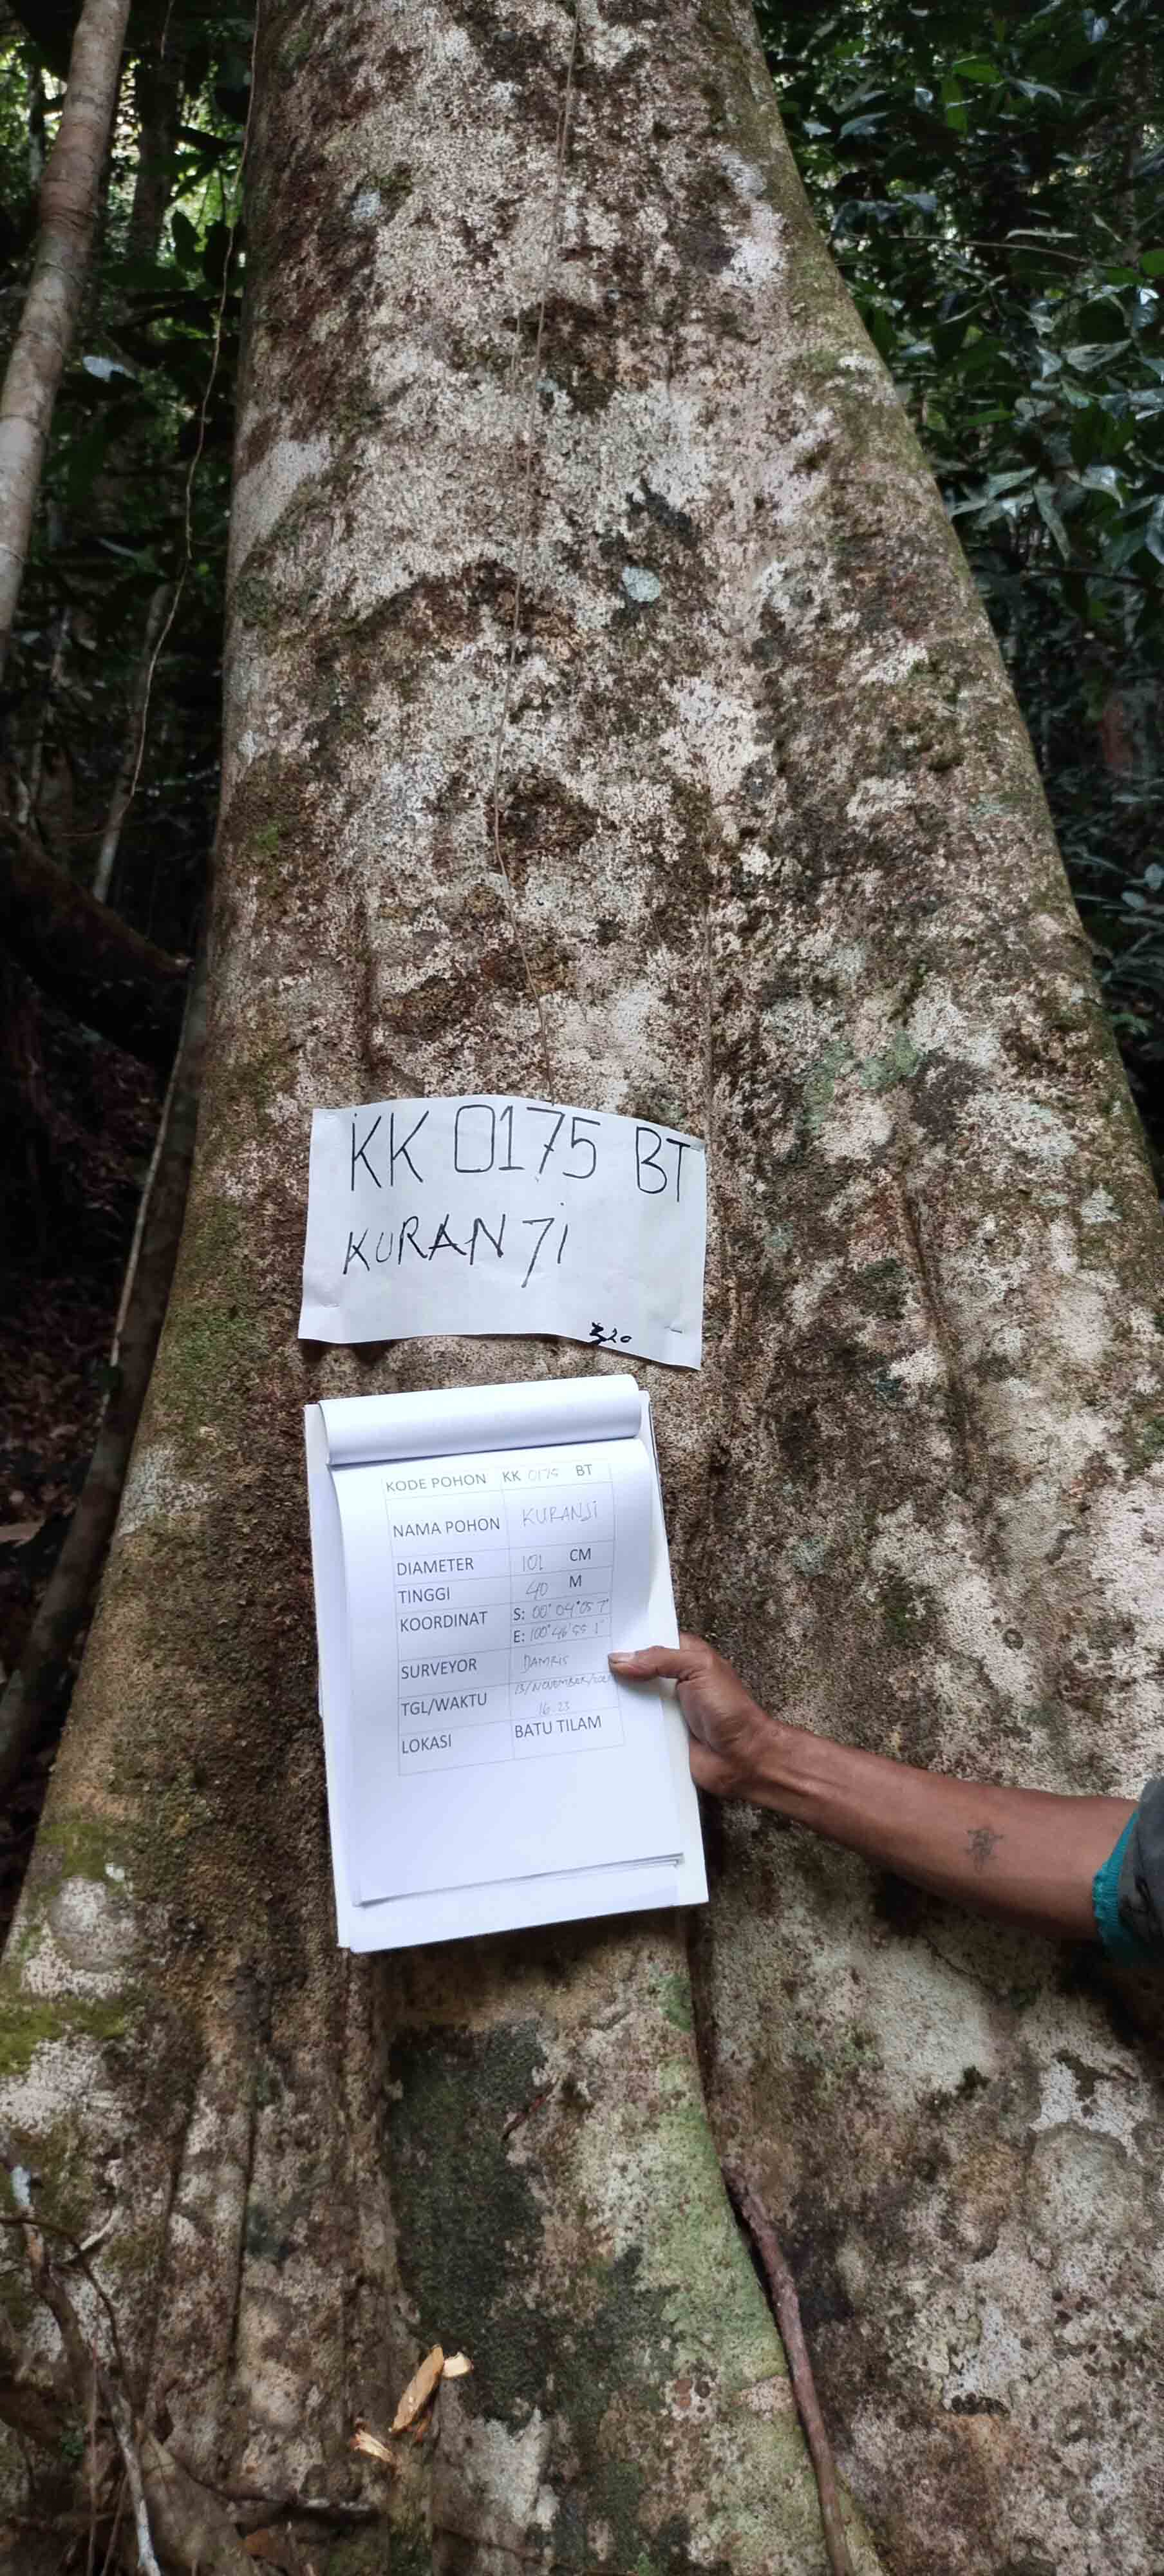 KK 0175 BT
KURANJi
320
KODE POHON KK 0175 BT
NAMA POHON KURANJi
DIAMETER 101 CM
TINGGI 40 M
KOORDINAT S: 00° 04' 05 7"
E: 100° 46' 55 1"
SURVEYOR DAMRIS
TGL/WAKTU 13/NOVEMBER/
16.23
LOKASI BATU TILAM